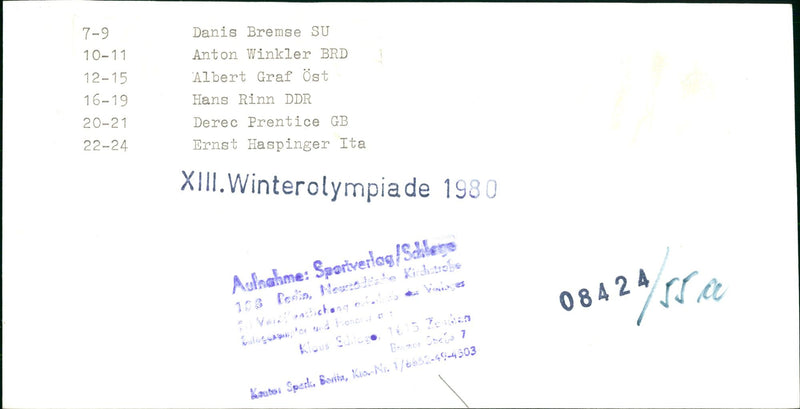 7-9 Danis Bremse SU
10-11 Anton Winkler BRD
12-15 Albert Graf Öst
16-19 Hans Rinn DDR
20-21 Derec Prentice GB
22-24 Ernst Haspinger Ita
XIII.Winterolympiade 1980
Aufnahme: Sportverlag/Schlage
108 Berlin, Neustädtische Kirchstraße
Bei Veröffentlichung des Verlages
und
Klaus Schlage, Zeuthen
Straße 7
Konto: Spark. Berlin, Kto.-Nr. 1/6652-49-4303
08424/55a